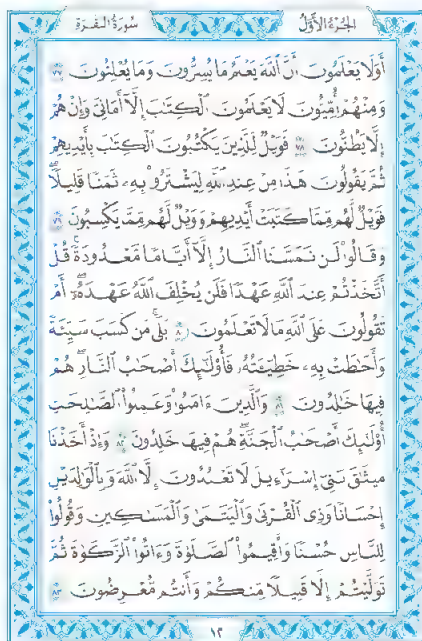 سورة البقرة الجزء الأول
أَوَلَا يَعْلَمُونَ أَنَّ اللَّهَ يَعْلَمُ مَا يُسِرُّونَ وَمَا يُعْلِنُونَ ٧٧
وَمِنْهُمْ أُمِّيُّونَ لَا يَعْلَمُونَ الْكِتَابَ إِلَّا أَمَانِيَّ وَإِنْ هُمْ
إِلَّا يَظُنُّونَ ٧٨ فَوَيْلٌ لِلَّذِينَ يَكْتُبُونَ الْكِتَابَ بِأَيْدِيهِمْ
ثُمَّ يَقُولُونَ هَٰذَا مِنْ عِنْدِ اللَّهِ لِيَشْتَرُوا بِهِ ثَمَنًا قَلِيلًا
فَوَيْلٌ لَهُمْ مِمَّا كَتَبَتْ أَيْدِيهِمْ وَوَيْلٌ لَهُمْ مِمَّا يَكْسِبُونَ ٧٩
وَقَالُوا لَنْ تَمَسَّنَا النَّارُ إِلَّا أَيَّامًا مَعْدُودَةً قُلْ
أَتَّخَذْتُمْ عِنْدَ اللَّهِ عَهْدًا فَلَنْ يُخْلِفَ اللَّهُ عَهْدَهُ أَمْ
تَقُولُونَ عَلَى اللَّهِ مَا لَا تَعْلَمُونَ ٨٠ بَلَىٰ مَنْ كَسَبَ سَيِّئَةً
وَأَحَاطَتْ بِهِ خَطِيئَتُهُ فَأُولَٰئِكَ أَصْحَابُ النَّارِ هُمْ
فِيهَا خَالِدُونَ ٨١ وَالَّذِينَ آمَنُوا وَعَمِلُوا الصَّالِحَاتِ
أُولَٰئِكَ أَصْحَابُ الْجَنَّةِ هُمْ فِيهَا خَالِدُونَ ٨٢ وَإِذْ أَخَذْنَا
مِيثَاقَ بَنِي إِسْرَائِيلَ لَا تَعْبُدُونَ إِلَّا اللَّهَ وَبِالْوَالِدَيْنِ
إِحْسَانًا وَذِي الْقُرْبَىٰ وَالْيَتَامَىٰ وَالْمَسَاكِينِ وَقُولُوا
لِلنَّاسِ حُسْنًا وَأَقِيمُوا الصَّلَاةَ وَآتُوا الزَّكَاةَ ثُمَّ
تَوَلَّيْتُمْ إِلَّا قَلِيلًا مِنْكُمْ وَأَنْتُمْ مُعْرِضُونَ ٨٣
١٢